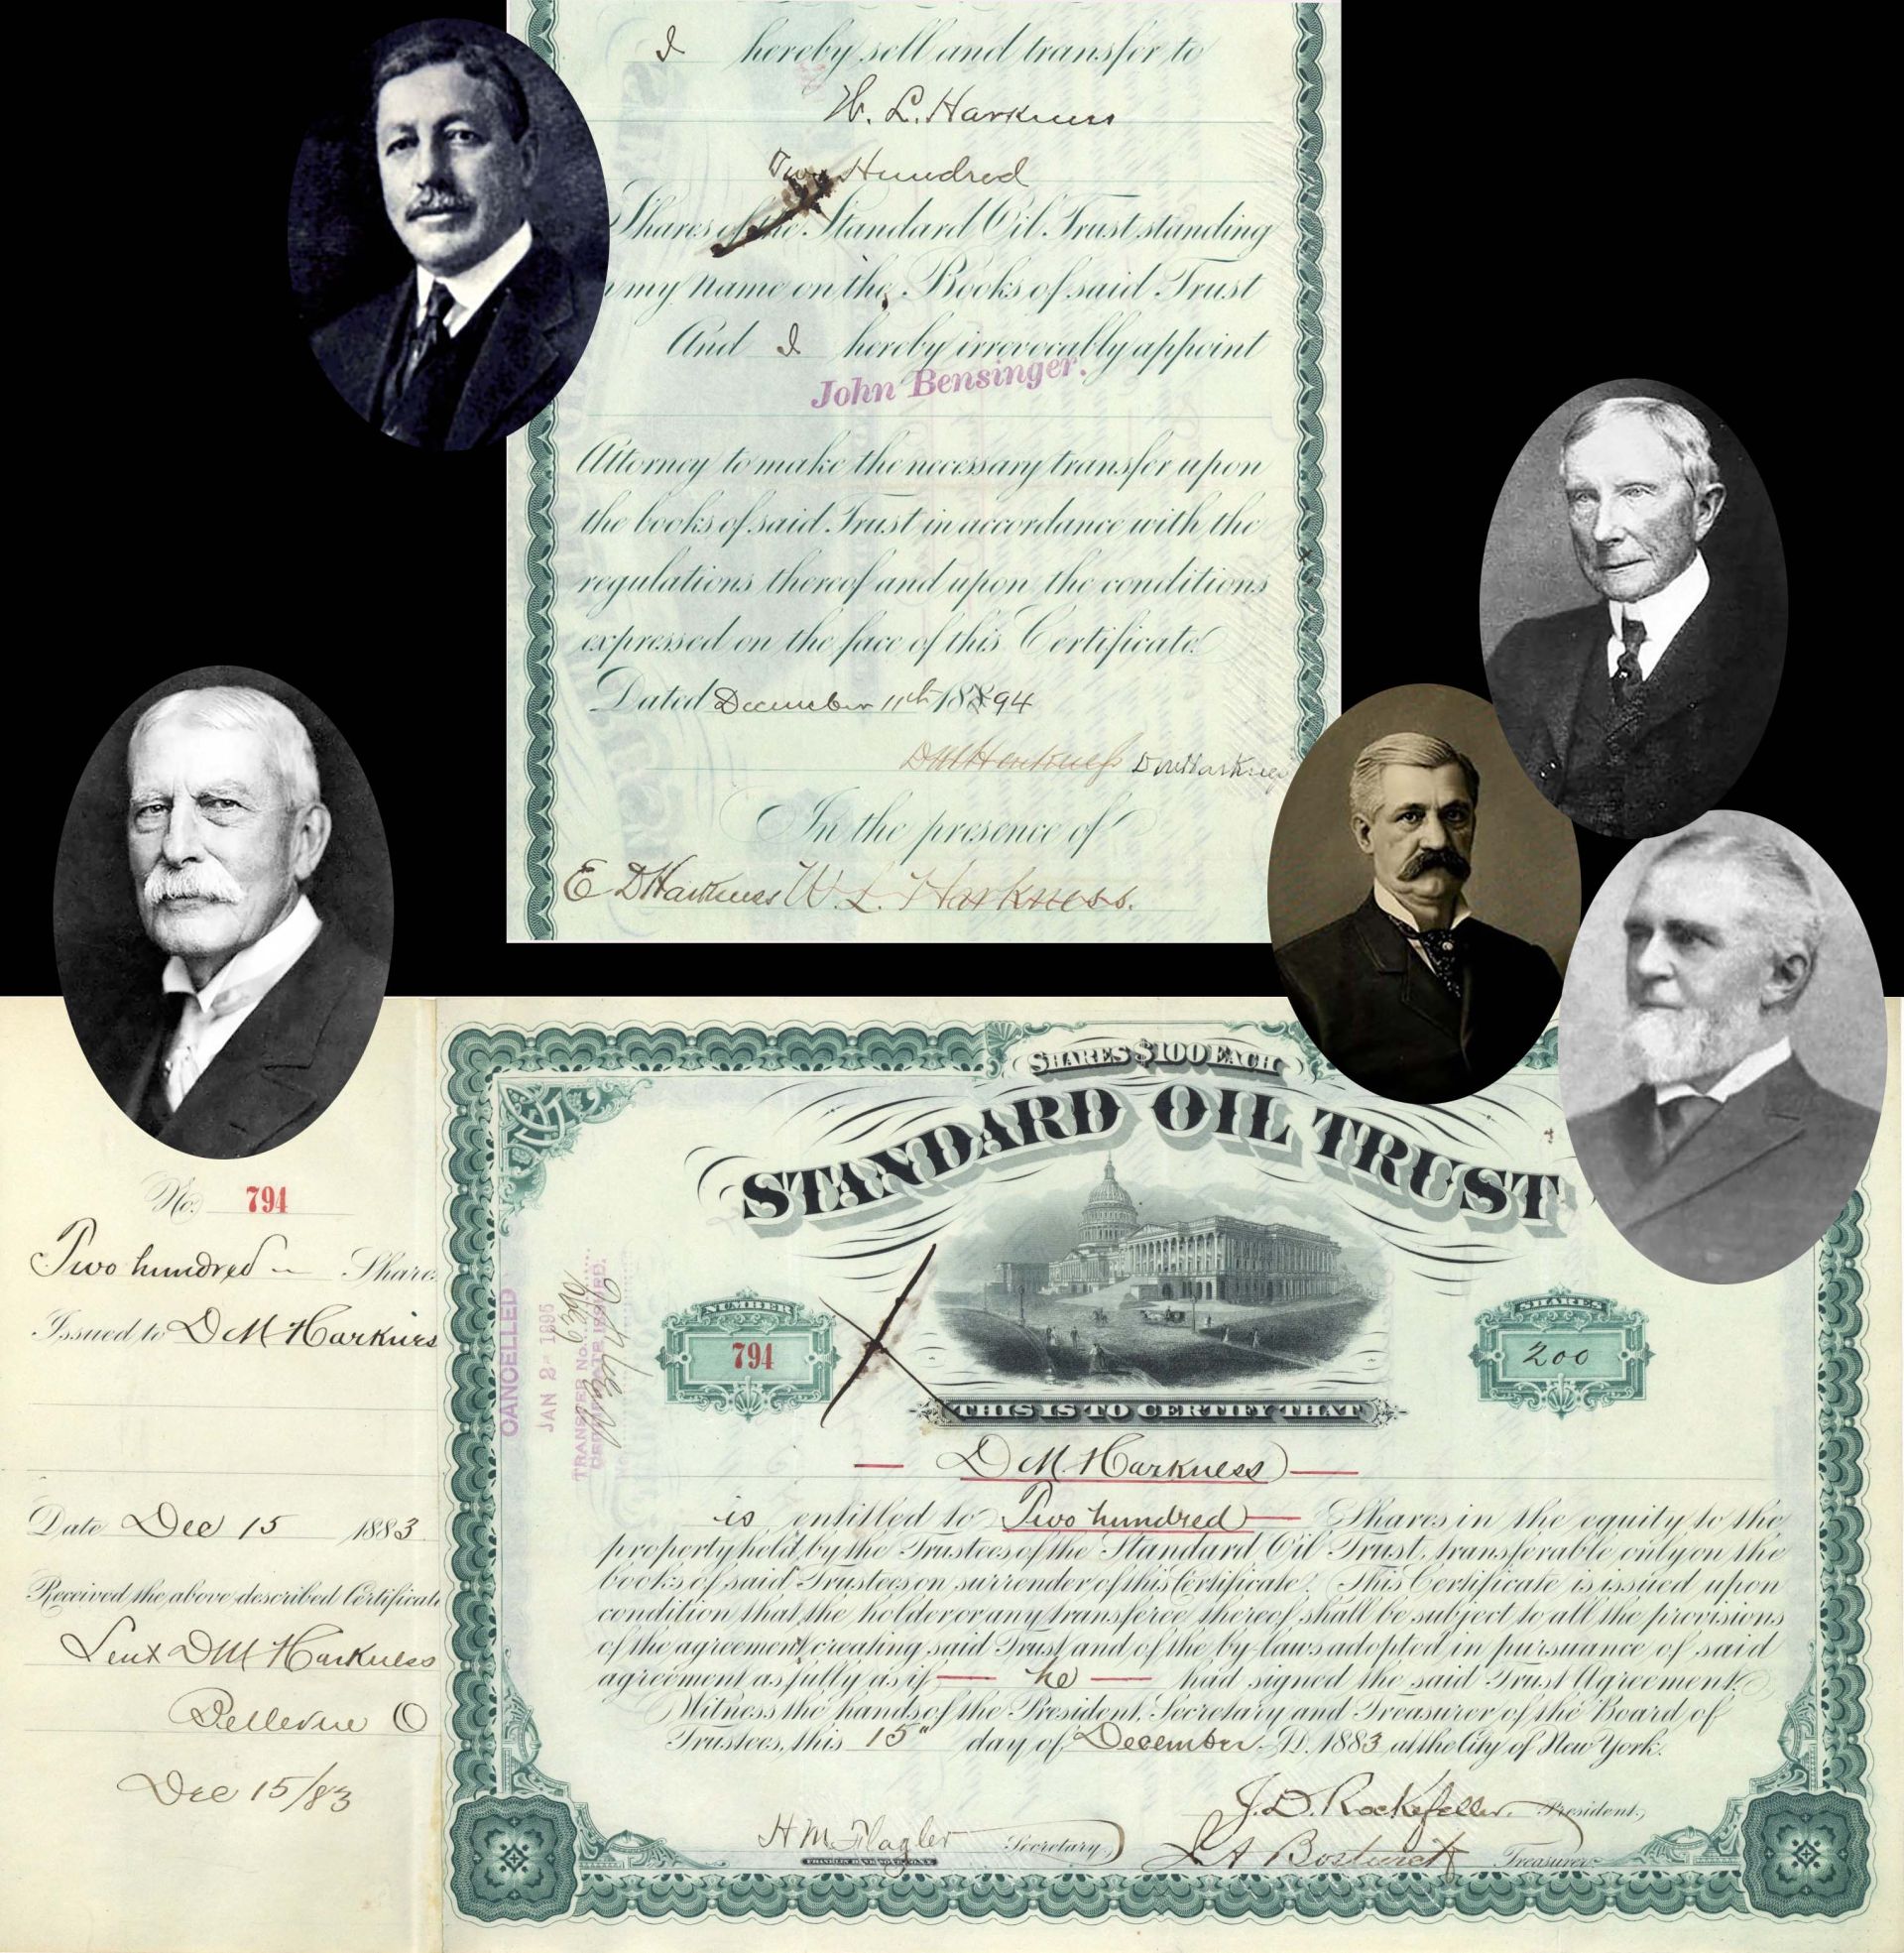 I hereby sell and transfer to
W. L. Harkness
Two Hundred
Shares of the Standard Oil Trust standing
my name on the Books of said Trust
And I hereby irrevocably appoint
John Bensinger.
Attorney to make the necessary transfer upon
the books of said Trust in accordance with the
regulations thereof and upon the conditions
expressed on the face of this Certificate
Dated December 11th 1894
D M Harkness D M Harkness
In the presence of
E D Harkness W. L. Harkness.
No. 794
Two hundred Share
Issued to D M Harkness
Date Dec 15 1883
Received the above described Certificate
Sent D M Harkness
Bellevue O
Dec 15/83
CANCELLED
JAN 2 1895
TRANSFER No.
CERTIFICATE ISSUED.
SHARES $100 EACH
STANDARD OIL TRUST
NUMBER
794
SHARES
200
THIS IS TO CERTIFY THAT
D M Harkness
is entitled to Two hundred Shares in the equity to the
property held by the Trustees of the Standard Oil Trust, transferable only on the
books of said Trustees on surrender of this Certificate. This Certificate is issued upon
condition that the holder or any transferee thereof shall be subject to all the provisions
of the agreement creating said Trust and of the by-laws adopted in pursuance of said
agreement as fully as if he had signed the said Trust Agreement.
Witness the hands of the President, Secretary and Treasurer of the Board of
Trustees, this 15" day of December A.D. 1883 at the City of New York.
J. D. Rockefeller. President,
H M Flagler Secretary
J A Bostwick Treasurer